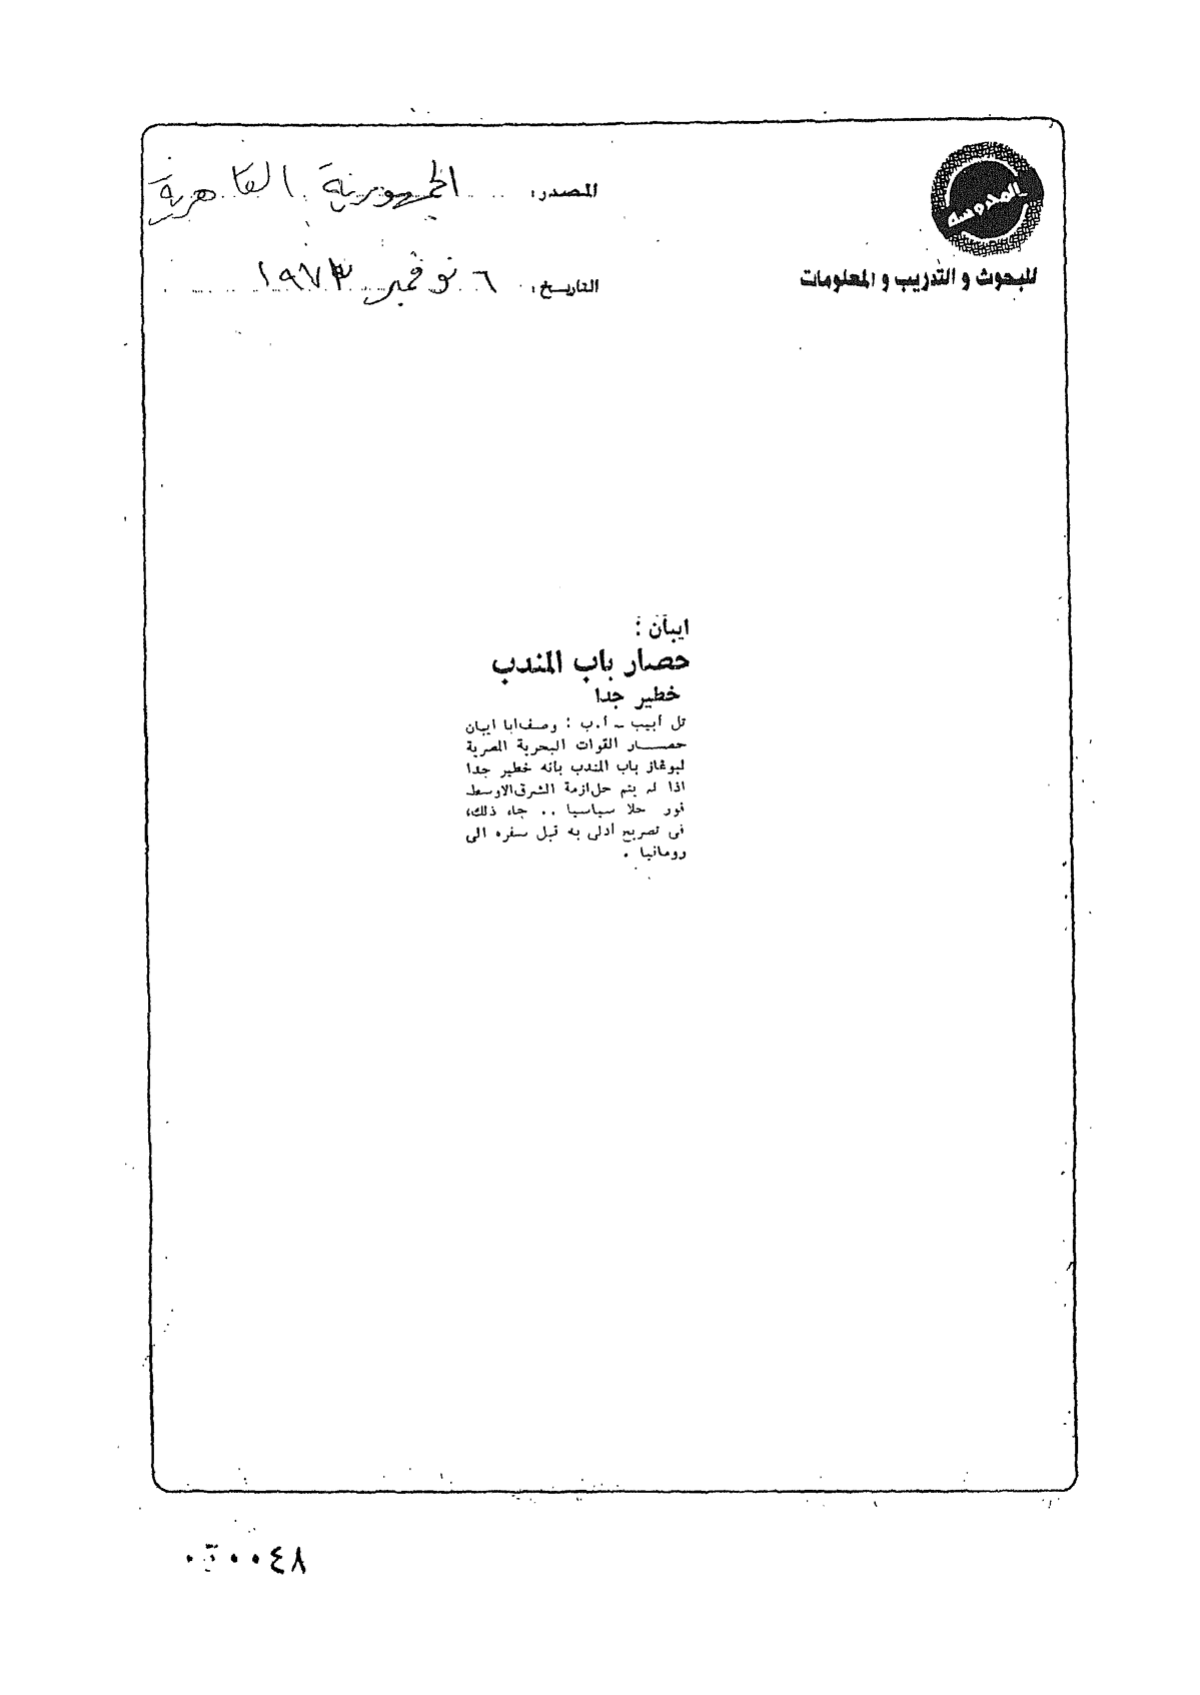 المحروسة
للبحوث و التدريب و المعلومات
المصدر: الجمهورية القاهرية
التاريخ: ٦ نوفمبر ١٩٧٣
ايبان :
حصار باب المندب
خطير جدا
تل أبيب ــ أ.ب : وصف ابا ايبان
حصــار القوات البحرية المصرية
لبوغاز باب المندب بانه خطير جدا
اذا لم يتم حل ازمة الشرق الاوسط
فور حلا سياسيا .. جاء ذلك
فى تصريح أدلى به قبل سفره الى
رومانيا .
٠٠٤٨